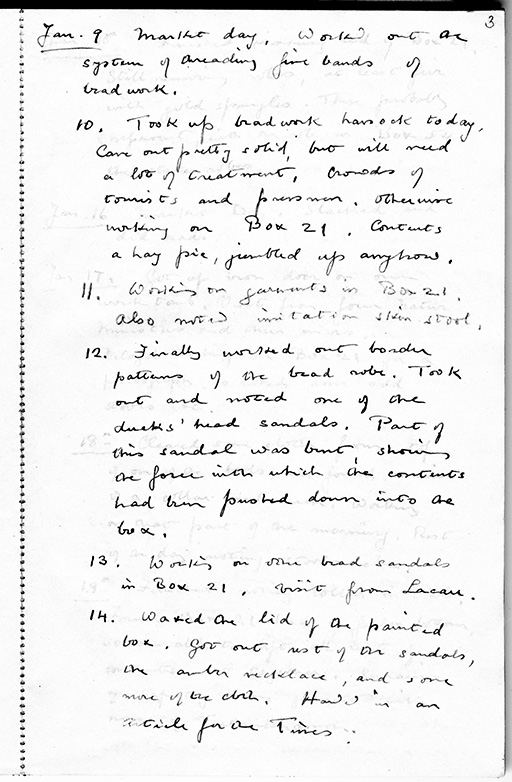 3
Jan. 9 Market day. Worked out the
system of threading five bands of
beadwork.
10. Took up beadwork hassock today.
Came out pretty solid, but will need
a lot of treatment. Crowds of
tourists and pressmen. Otherwise
working on Box 21. Contents
a hay pie, jumbled up anyhow.
11. Working on garments in Box 21.
Also noted imitation skin stool.
12. Finally worked out border
patterns of the bead robe. Took
out and noted one of the
ducks' head sandals. Part of
this sandal was bent, showing
the force with which the contents
had been pushed down into the
box.
13. Working on some bead sandals
in Box 21. Visit from Lacau.
14. Waxed the lid of the painted
box. Got out rest of the sandals,
the amber necklace, and some
more of the cloth. Handed in an
article for the Times.